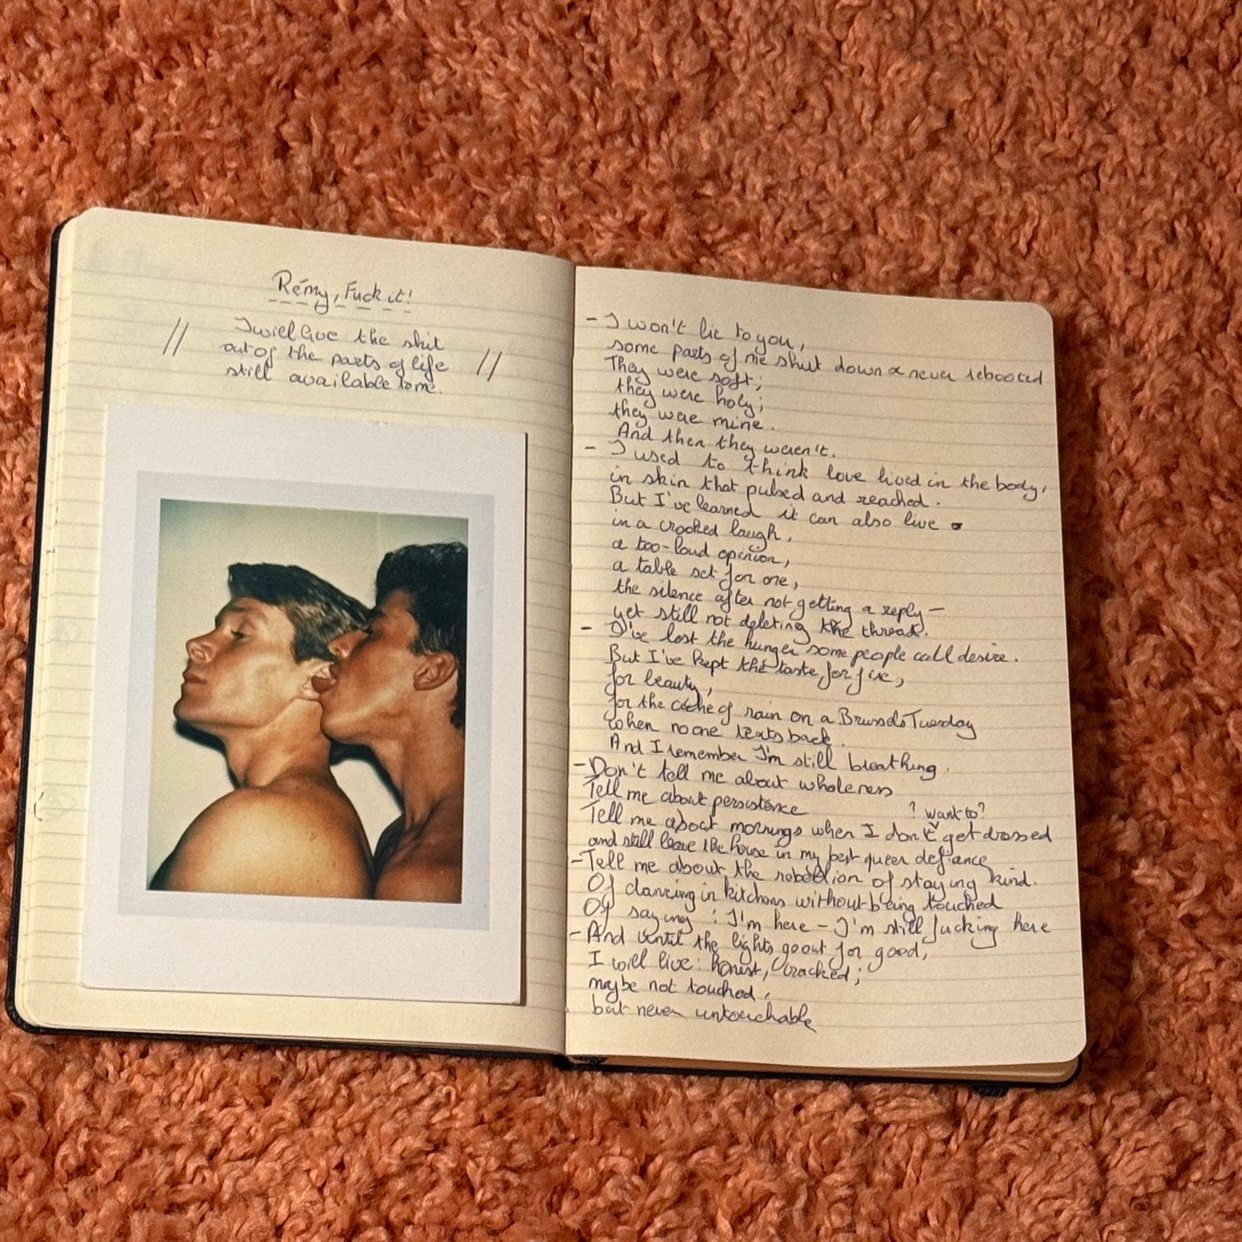 Rémy, Fuck it!
// I will live the shit //
out of the parts of life
still available to me.
- I won't lie to you,
some parts of me shut down & never rebooted
They were soft;
they were holy;
they were mine.
And then they weren't.
- I used to think love lived in the body,
in skin that pulsed and reached.
But I've learned it can also live
in a crooked laugh,
a too-loud opinion,
a table set for one,
the silence after not getting a reply —
yet still not deleting the thread.
- I've lost the hunger some people call desire.
But I've kept the taste for fire,
for beauty,
for the ache of rain on a Brussels Tuesday
when no one texts back.
And I remember I'm still breathing.
- Don't tell me about wholeness
Tell me about persistence
Tell me about mornings when I don't ? want to? get dressed
and still leave the house in my best queer defiance
- Tell me about the rebellion of staying kind.
Of dancing in kitchens without being touched
Of saying : I'm here - I'm still fucking here
- And until the lights go out for good,
I will live: honest, cracked;
maybe not touched,
but never untouchable